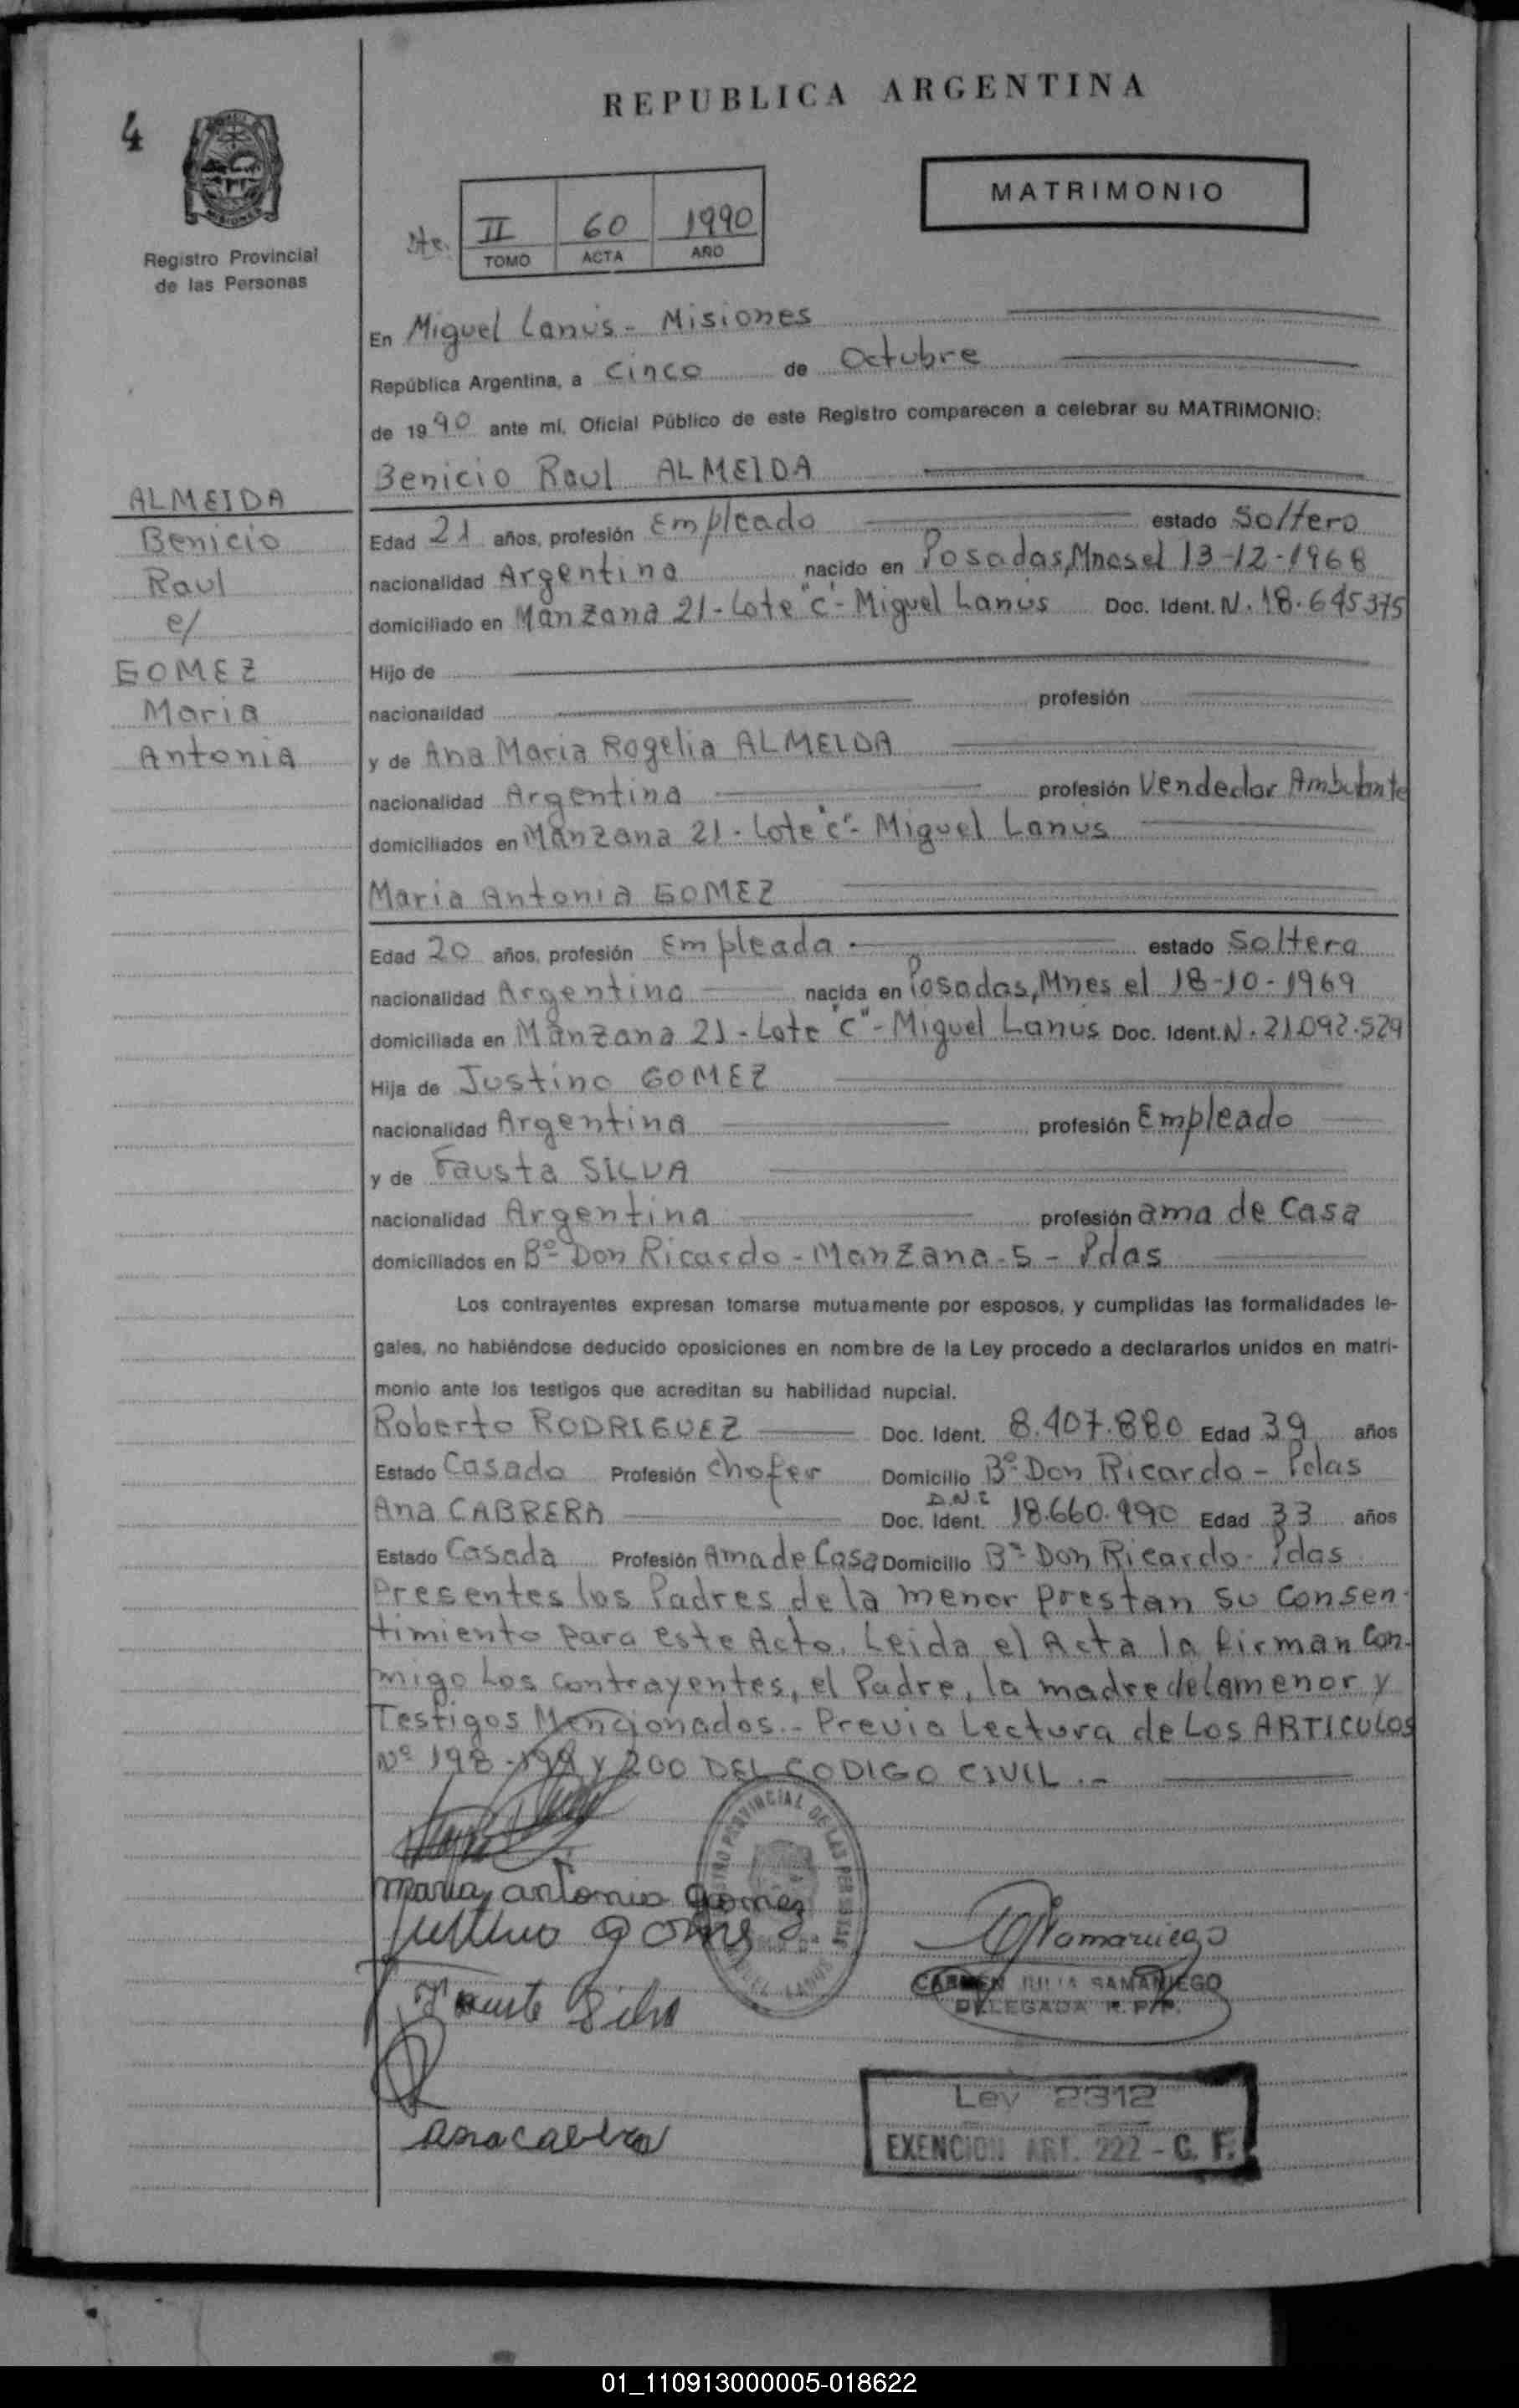 REPUBLICA ARGENTINA
4
MATRIMONIO
Registro Provincial
de las Personas
II 60 1990
TOMO ACTA AÑO
En Miguel Lanús - Misiones
República Argentina, a Cinco de Octubre
de 1990 ante mí, Oficial Público de este Registro comparecen a celebrar su MATRIMONIO:
Benicio Raul ALMEIDA
ALMEIDA
Benicio
Raul
e/
GOMEZ
Maria
Antonia
Edad 21 años, profesión Empleado estado Soltero
nacionalidad Argentina nacido en Posadas, Mnes el 13-12-1968
domiciliado en Manzana 21 - Lote "C" - Miguel Lanús Doc. Ident. N. 18.645375
Hijo de
nacionalidad profesión
y de Ana Maria Rogelia ALMEIDA
nacionalidad Argentina profesión Vendedor Ambulante
domiciliados en Manzana 21 - Lote "C" - Miguel Lanús
Maria Antonia GOMEZ
Edad 20 años, profesión Empleada estado Soltera
nacionalidad Argentina nacida en Posadas, Mnes el 18-10-1969
domiciliada en Manzana 21 - Lote "C" - Miguel Lanús Doc. Ident. N. 21.092.529
Hija de Justino GOMEZ
nacionalidad Argentina profesión Empleado
y de Fausta SILVA
nacionalidad Argentina profesión ama de Casa
domiciliados en Bº Don Ricardo - Manzana - 5 - Pdas
Los contrayentes expresan tomarse mutuamente por esposos, y cumplidas las formalidades le-
gales, no habiéndose deducido oposiciones en nombre de la Ley procedo a declararlos unidos en matri-
monio ante los testigos que acreditan su habilidad nupcial.
Roberto RODRIGUEZ Doc. Ident. 8.407.880 Edad 39 años
Estado Casado Profesión Chofer Domicilio Bº Don Ricardo - Pdas
Ana CABRERA D.N.I Doc. Ident. 18.660.990 Edad 33 años
Estado Casada Profesión Ama de Casa Domicilio Bº Don Ricardo - Pdas
Presentes los Padres de la menor prestan su consen-
timiento para este Acto. Leida el Acta la firman Con-
migo Los contrayentes, el Padre, la madre de la menor y
Testigos Mencionados.- Previa Lectura de Los ARTICULOS
Nº 198 - 199 y 200 DEL CODIGO CIVIL.-
maria antonia gomez
Justino gomez
Fausta Silva
CARMEN JULIA SAMANIEGO
DELEGADA R. P. P.
ana cabrera
Ley 2312
EXENCION ART. 222 - C. F.
01_110913000005-018622